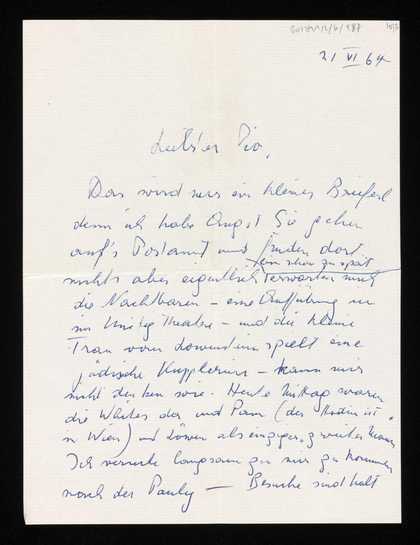 21 VI 64
Liebster Pio,
Das wird nur ein kleines Brieferl
denn ich habe Angst Sie gehen
auf's Postamt und finden dort
ein schon zu spät
nichts aber eigentlich erwarten mich
die Nachbaren – eine Aufführung in
im Unity Theatre – und die kleine
Frau von spielt eine
jüdische Kupplerin – kann mir
nicht denken wie. Heute Mittag waren
die Whites da und Pam (der ist
in Wien) und als einziger, zweiter
Ich versuche langsam zu mir zu kommen
nach der Pauly — Besuche sind halt